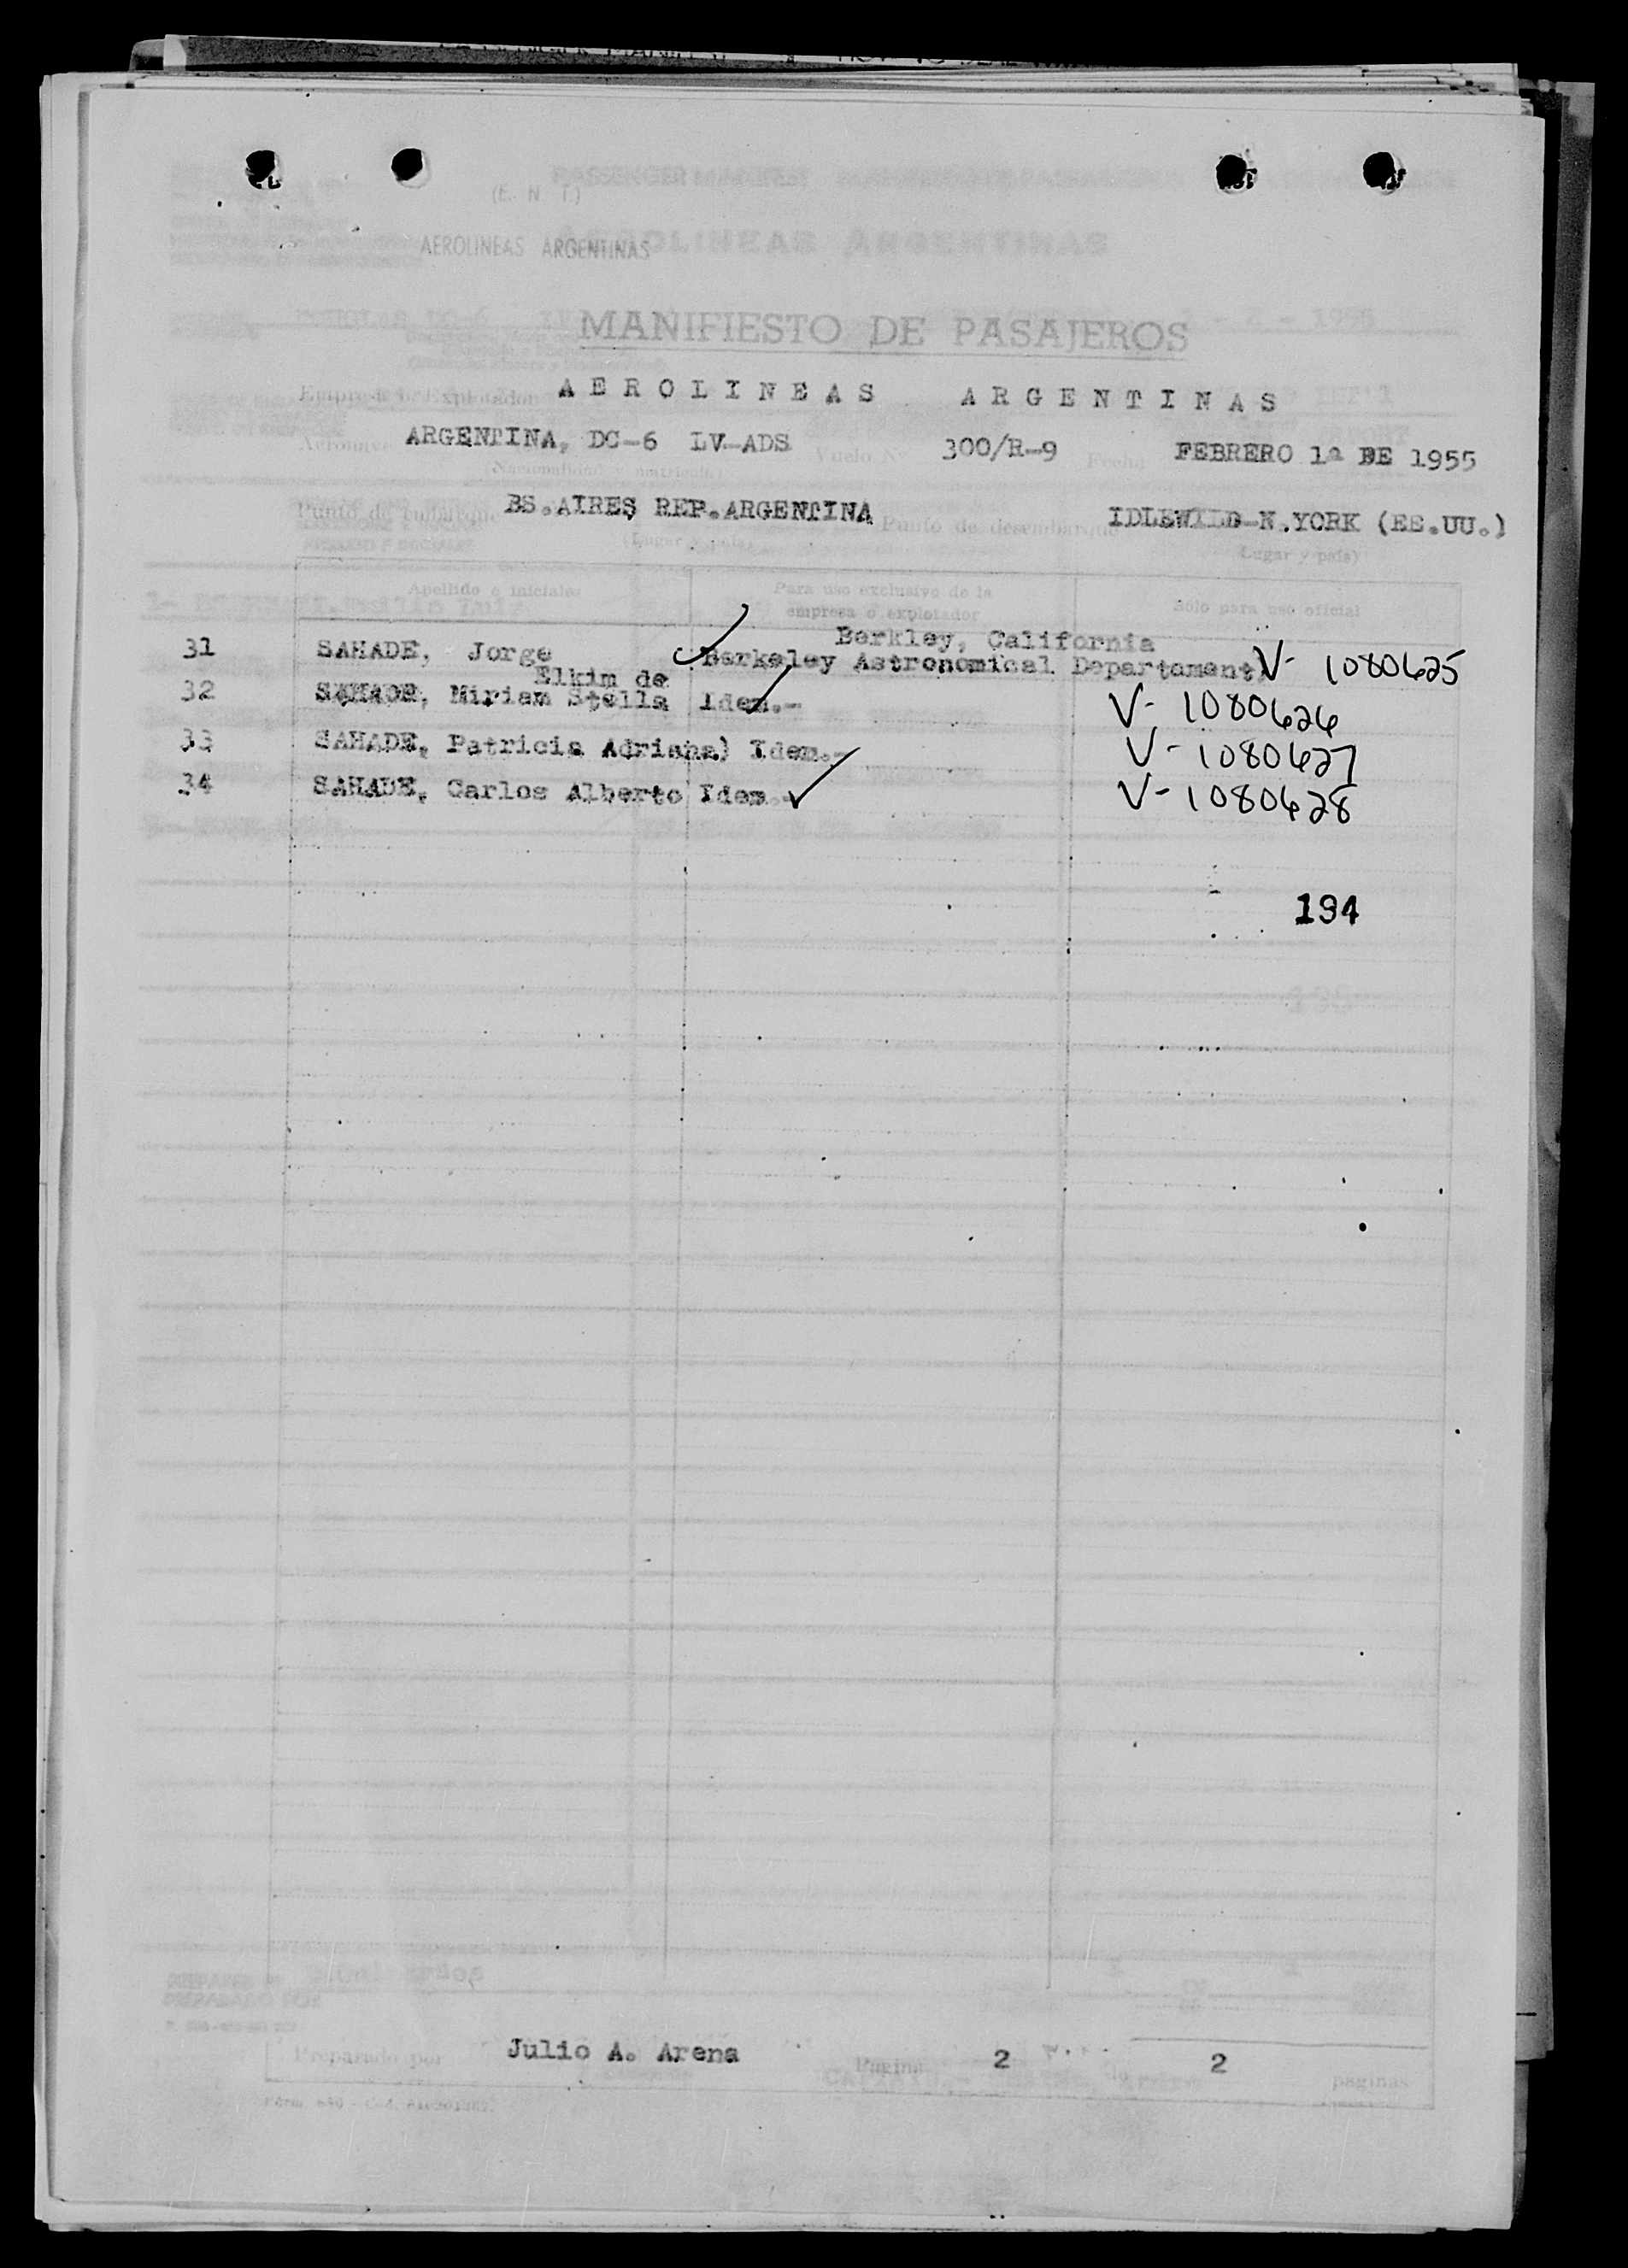 (E. N. T.)
AEROLINEAS ARGENTINAS
MANIFIESTO DE PASAJEROS
AEROLINEAS ARGENTINAS
ARGENTINA, DC-6 LV-ADS Vuelo Nº 300/R-9 Fecha FEBRERO 1ª DE 1955
Punto de embarque BS.AIRES REP.ARGENTINA Punto de desembarque IDLEWILD-N.YORK (EE.UU.)
(Lugar y país) Lugar y país)
Apellido e iniciales Para uso exclusivo de la empresa o explotador Sólo para uso oficial
Berkley, California
31 SAHADE, Jorge Berkeley Astronomical Departament V- 1080625
Elkim de
32 SAHADE, Miriam Stella Idem.- V- 1080626
33 SAHADE, Patricia Adriana) Idem.- V- 1080627
34 SAHADE, Carlos Alberto Idem.- V- 1080628
194
Preparado por Julio A. Arena Página 2 de 2 páginas